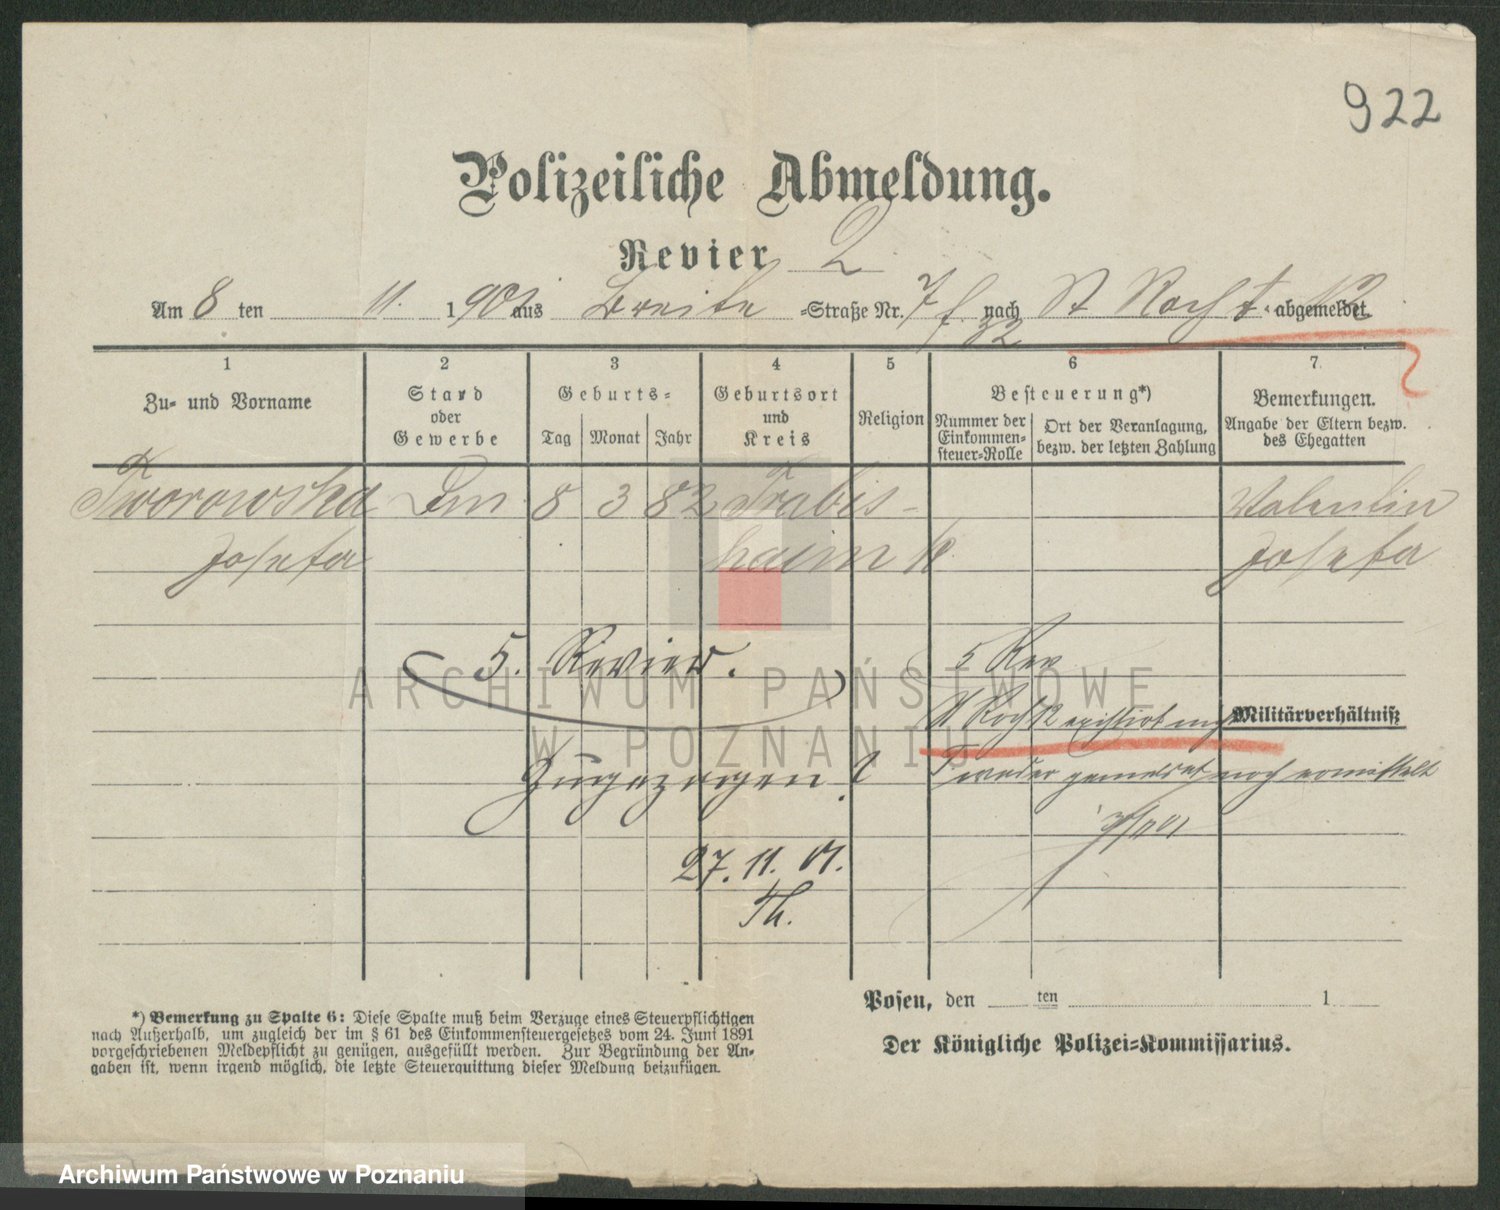 922
Polizeiliche Abmeldung.
Revier 2
Am 8 ten 11. 1901 aus Breite -Straße Nr. 7 nach St Roch 12 abgemeldet.
32
1 2 3 4 5 6 7.
Zu- und Vorname
Stand
oder
Gewerbe
Geburts-
Tag Monat Jahr
Geburtsort
und
Kreis
Religion
Besteuerung*)
Nummer der
Einkommen-
steuer-Rolle
Ort der Veranlagung,
bezw. der letzten Zahlung
Bemerkungen.
Angabe der Eltern bezw.
des Ehegatten
Tworowska 8 3 82 Trabis- Valentin
Josefa heim k. Josefa
5. Revier. 5 Rev
St Roch 12 existirt
Militärverhältniß
Zugezogen?
weder gemeldet noch ermittelt
27. 11. 01.
Th.
Posen, den ten 1
Der Königliche Polizei-Kommissarius.
*) Bemerkung zu Spalte 6: Diese Spalte muß beim Verzuge eines Steuerpflichtigen
nach Außerhalb, um zugleich der im § 61 des Einkommensteuergesetzes vom 24. Juni 1891
vorgeschriebenen Meldepflicht zu genügen, ausgefüllt werden. Zur Begründung der An-
gaben ist, wenn irgend möglich, die letzte Steuerquittung dieser Meldung beizufügen.
ARCHIWUM PAŃSTWOWE
W POZNANIU
Archiwum Państwowe w Poznaniu